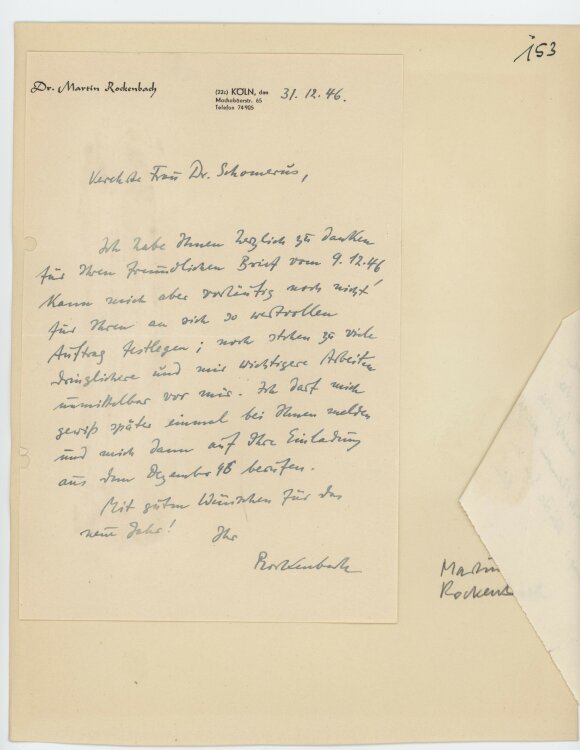 153
Dr. Martin Rockenbach
(22c) KÖLN, den 31.12.46.
Machabäerstr. 65
Telefon 74905
Verehrte Frau Dr. Schomerus,
Ich habe Ihnen herzlich zu danken
für Ihren freundlichen Brief vom 9.12.46
kann mich aber vorläufig noch nicht
für Ihren an sich so wertvollen
Auftrag festlegen; noch stehen zu viele
dringlichere und mir wichtigere Arbeiten
unmittelbar vor mir. Ich darf mich
gewiß später einmal bei Ihnen melden
und mich dann auf Ihre Einladung
aus dem Dezember 46 berufen.
Mit guten Wünschen für das
neue Jahr! Ihr
Rockenbach
Martin
Rockenb